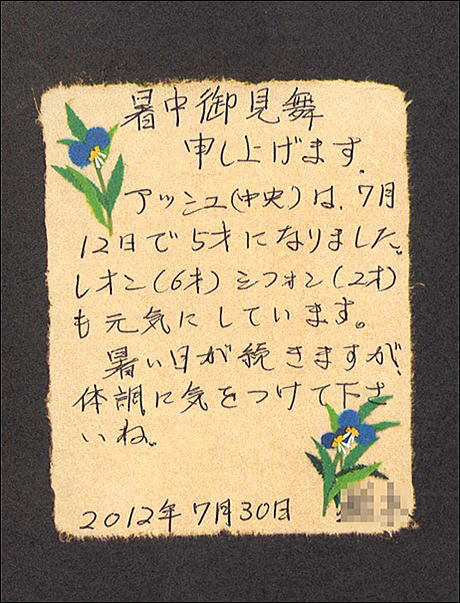 暑中御見舞
申し上げます.
アッシュ(中央)は、7月
12日で5才になりました。
レオン(6才)シフォン(2才)
も元気にしています。
暑い日が続きますが、
体調に気をつけて下さ
いね。
2012年7月30日